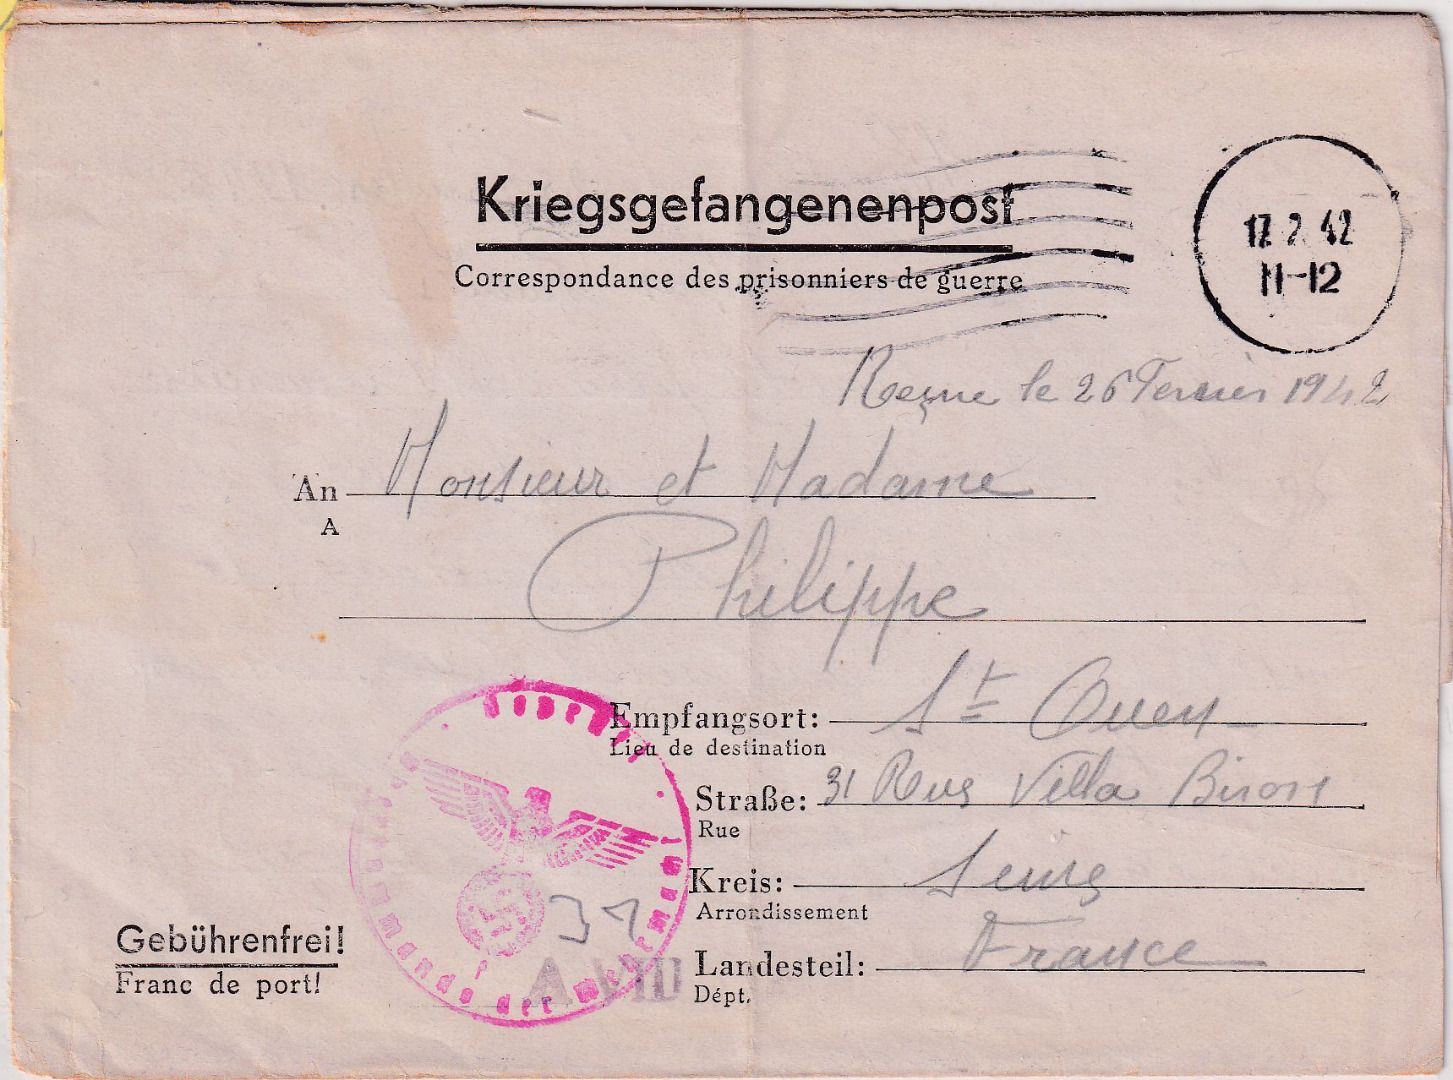 Kriegsgefangenenpost
Correspondance des prisonniers de guerre
17.2.42
11-12
Reçue le 26 Fevrier 1942
An Monsieur et Madame
A
Philippe
Empfangsort: St Ouen
Lieu de destination
Straße: 31 Rue Villa Biron
Rue
Kreis: Seine
Arrondissement
Landesteil: France
Dépt.
Gebührenfrei!
Franc de port!
Oberkommando der Wehrmacht
31
A VIII